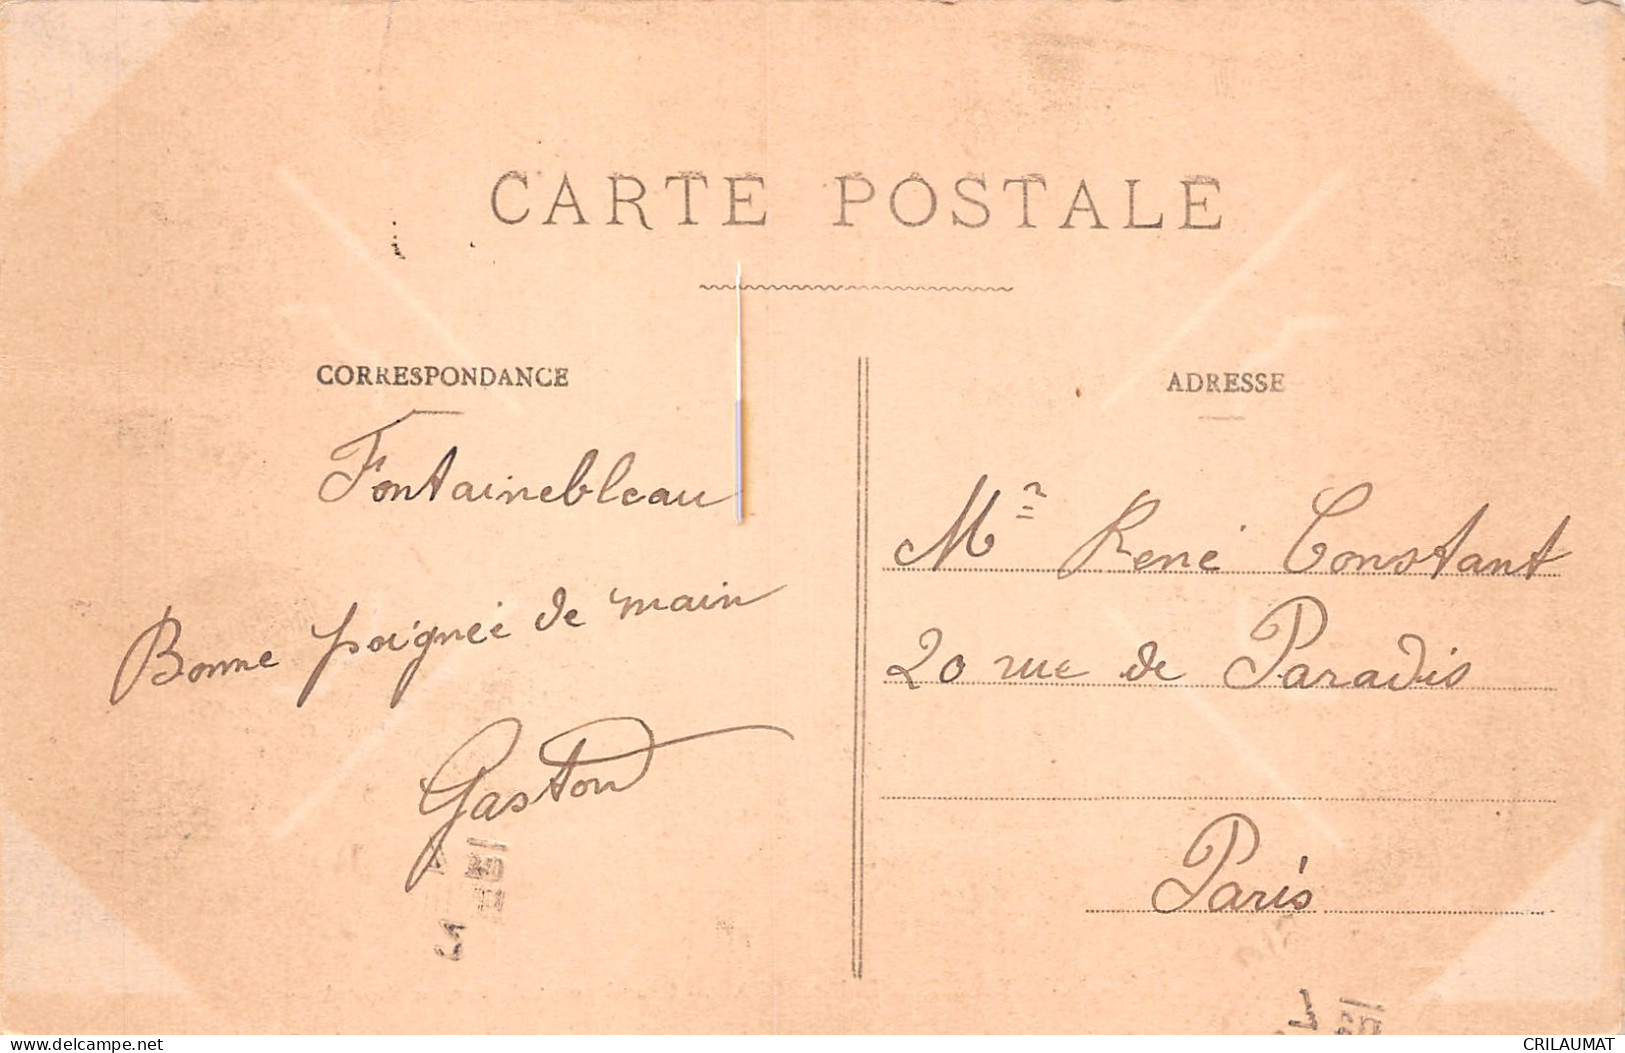 CARTE POSTALE
CORRESPONDANCE
Fontainebleau
Bonne poignée de main
Gaston
ADRESSE
Mr René Constant
20 rue de Paradis
Paris
delcampe.net
CRILAUMAT